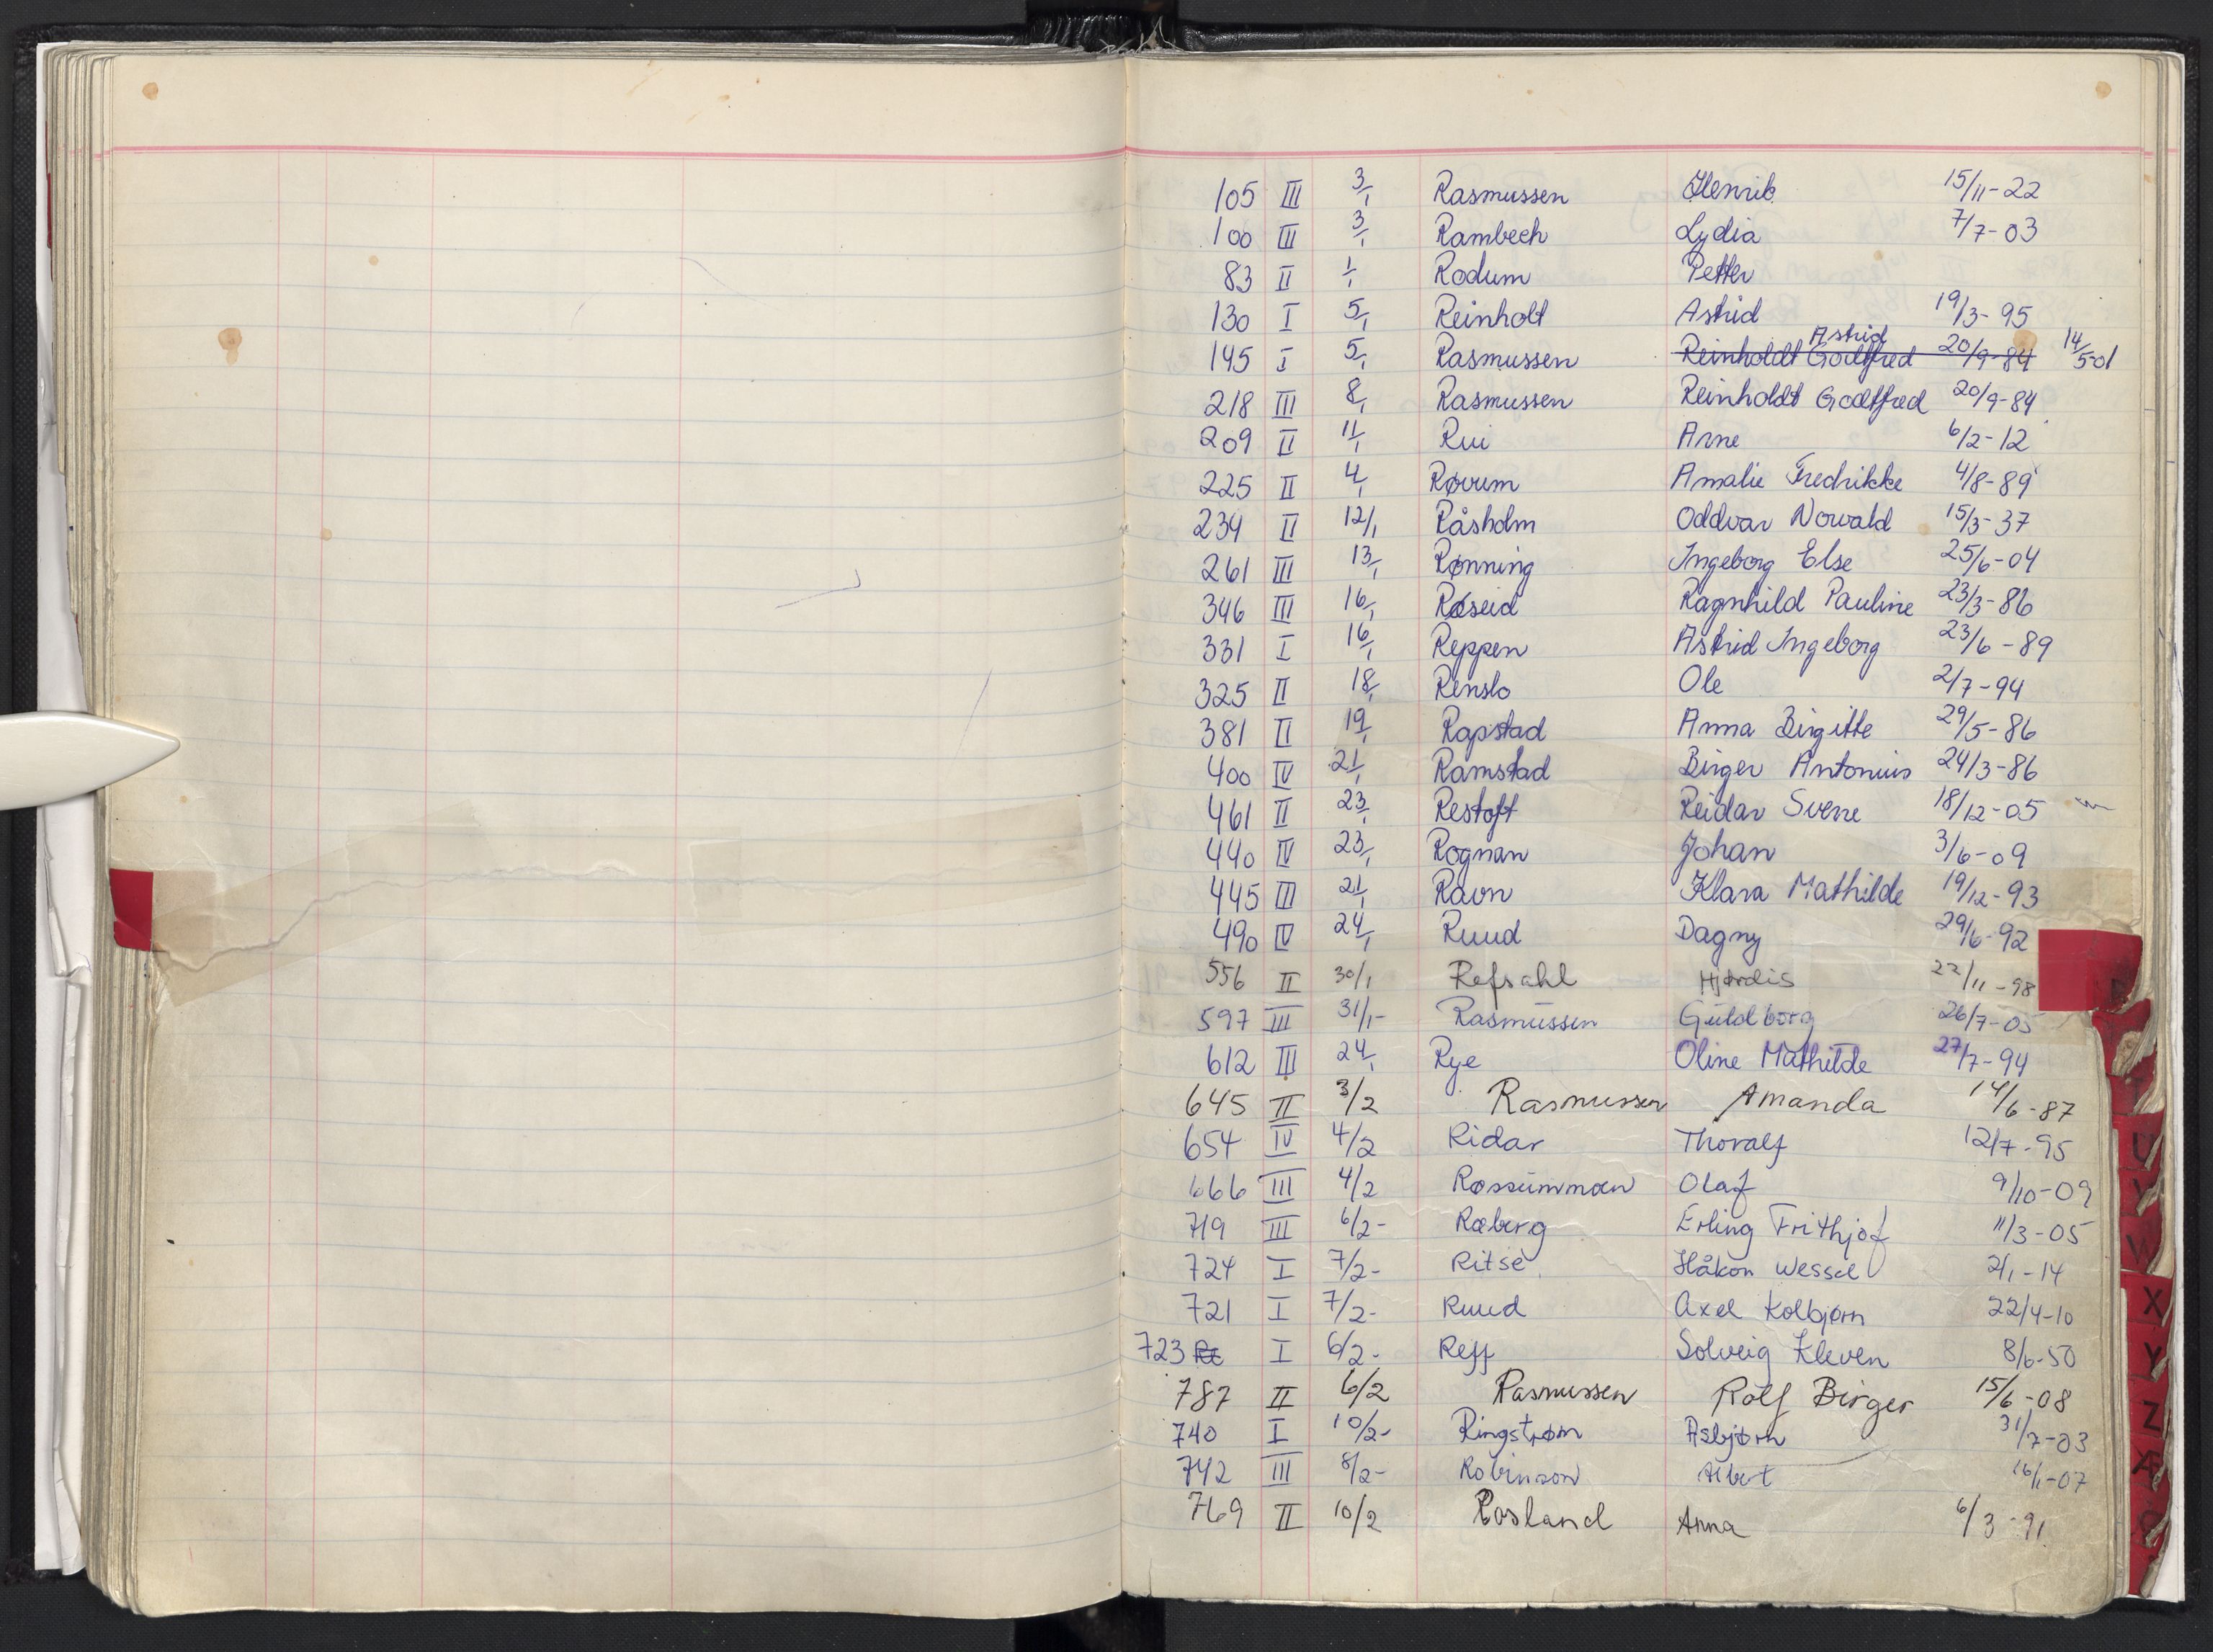 105 III 3/1 Rasmussen Henrik 15/11-22
100 III 3/1 Rambech Lydia 7/7-03
83 II 1/1 Rodum Petter
130 I 5/1 Reinholt Astrid 19/3-95
Astrid
145 I 5/1 Rasmussen Reinholdt Godtfred 20/9-84 14/5-01
218 III 8/1 Rasmussen Reinholdt Godtfred 20/9-84
209 II 11/1 Rui Arne 6/2-12
225 II 4/1 Røvum Amalie Fredrikke 4/8-89
234 II 12/1 Råsholm Oddvar Norvald 15/3-37
261 III 13/1 Rønning Ingeborg Else 25/6-04
346 III 16/1 Røseid Ragnhild Pauline 23/3-86
331 I 16/1 Reppen Astrid Ingeborg 23/6-89
325 II 18/1 Renslo Ole 2/7-94
381 II 19/1 Rapstad Anna Birgitte 29/5-86
400 IV 21/1 Ramstad Birger Antonius 24/3-86
461 II 23/1 Restoft Reidar Sverre 18/12-05
440 IV 23/1 Rognan Johan 3/6-09
445 III 21/1 Ravn Klara Mathilde 19/12-93
490 IV 24/1 Ruud Dagny 29/6-92
556 II 30/1 Refsahl Hjørdis 22/11-98
597 III 31/1- Rasmussen Guldborg 26/7-05
612 III 24/1 Rye Oline Mathilde 27/7-94
645 II 3/2 Rasmussen Amanda 14/6-87
654 IV 4/2 Ridar Thoralf 12/7-95
666 III 4/2 Røssummoen Olaf 9/10-09
719 III 6/2- Ræberg Erling Frithjof 11/3-05
724 I 7/2- Ritse Håkon Wessel 2/1-14
721 I 7/2- Ruud Axel Kolbjørn 22/4-10
723 Re I 6/2- Reff Solveig Kleven 8/6-50
787 II 6/2 Rasmussen Rolf Birger 15/6-08
740 I 10/2- Ringstrøm Asbjørn 31/7-03
742 III 8/2- Robinson Albert 16/1-07
769 II 10/2 Rosland Anna 6/3-91
U
V
W
X
Y
Z
Æ
Ø